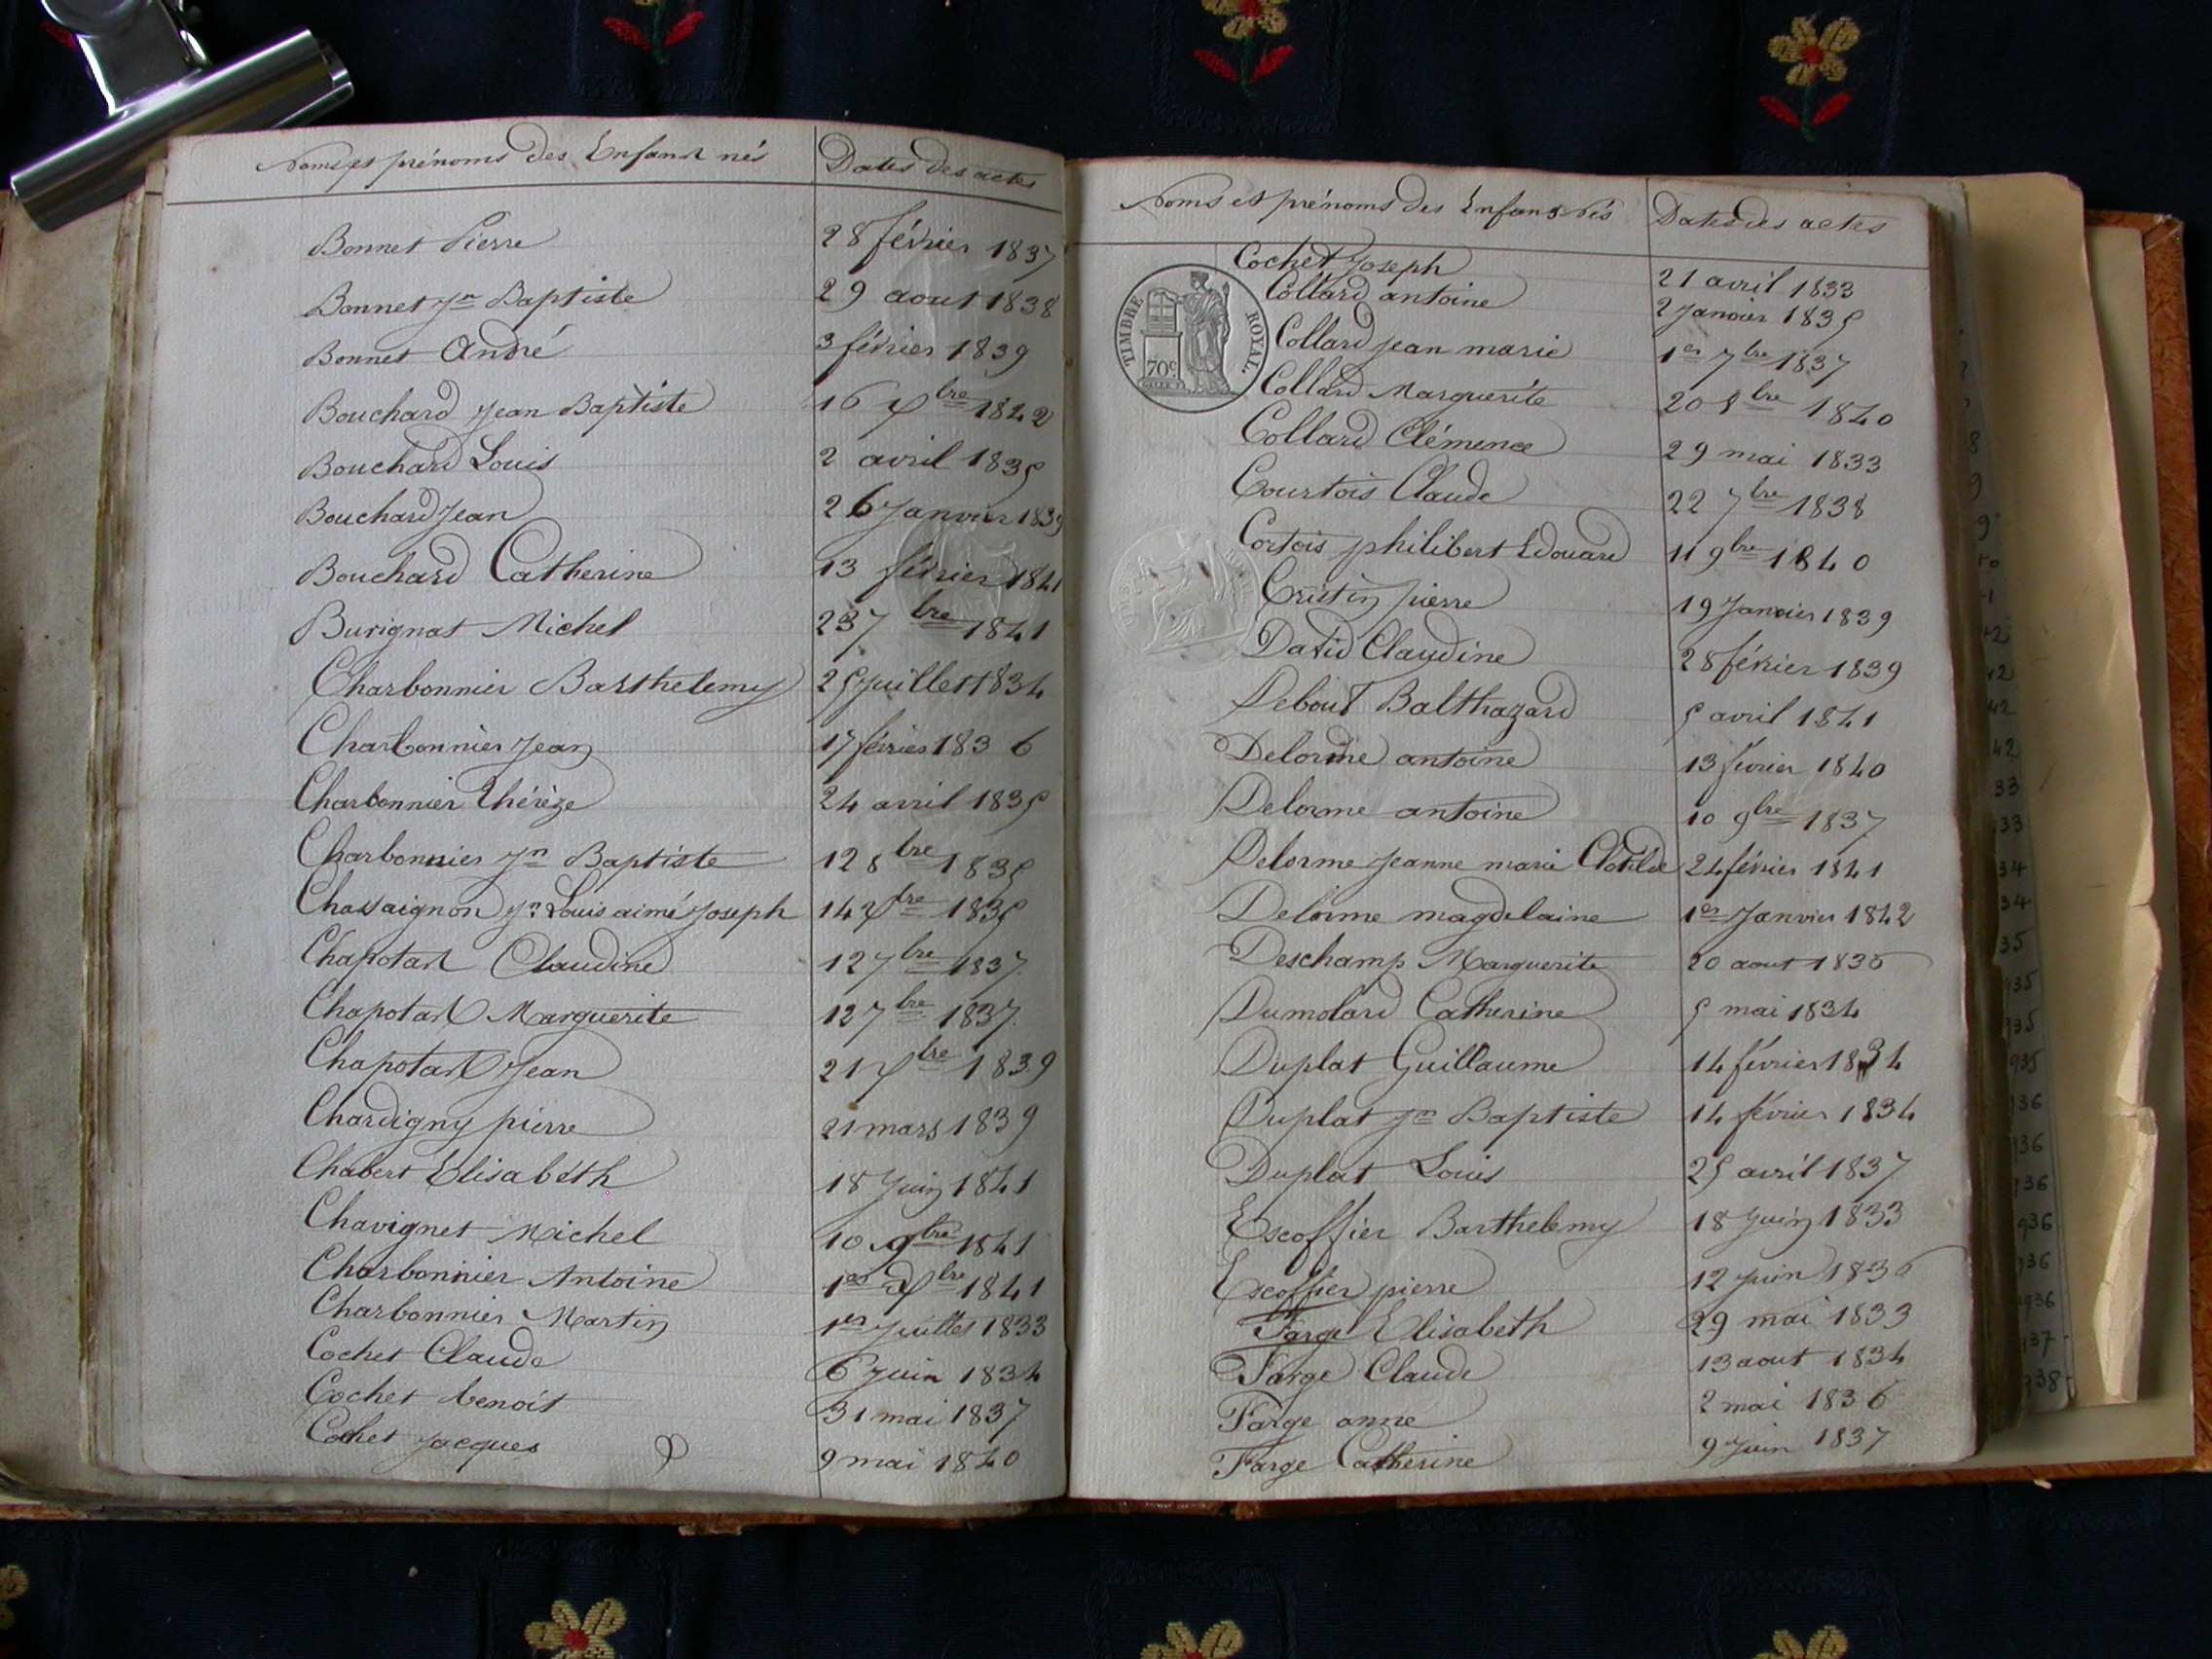 Noms et prénoms des Enfant nés Dates des actes
Bonnet Pierre 28 février 1837
Bonnet Jn Baptiste 29 aout 1838
Bonnet André 3 février 1839
Bouchard Jean Baptiste 16 Xbre 1842
Bouchard Louis 2 avril 1835
Bouchard Jean 26 Janvier 1839
Bouchard Catherine 13 février 1841
Burignat Michel 23 7bre 1841
Charbonnier Barthelemy 25 Juillet 1834
Charbonnier Jean 17 février 1836
Charbonnier Thérèze 24 avril 1835
Charbonnier Jn Baptiste 12 8bre 1835
Chassaignon Jn Louis aimé Joseph 14 Xbre 1835
Chapotart Claudine 12 7bre 1837
Chapotart Marguerite 12 7bre 1837
Chapotart Jean 21 Xbre 1839
Chardigny pierre 21 mars 1839
Chabert Elisabeth 18 Juin 1841
Chavignet Michel 10 9bre 1841
Charbonnier Antoine 1er Xbre 1841
Charbonnier Martin 1er Juillet 1833
Cochet Claude 6 Juin 1834
Cochet benoit 31 mai 1837
Cochet Jacques 9 mai 1840
Noms et prénoms des Enfans Nés Dates des actes
TIMBRE ROYAL
70c.
Cochet Joseph 21 avril 1833
Collard antoine 2 Janvier 1835
Collard jean marie 1er 7bre 1837
Collard Marguerite 20 8bre 1840
Collard Clémence 29 mai 1833
Courtois Claude 22 7bre 1838
Cortois philibert Edouard 11 9bre 1840
Cristin pierre 19 Janvier 1839
David Claudine 28 février 1839
Debout Balthazard 5 avril 1841
Delorme antoine 13 février 1840
Delorme antoine 10 9bre 1837
Delorme Jeanne marie Clotilde 24 février 1841
Delorme magdelaine 1er Janvier 1842
Deschamp Marguerite 20 aout 1836
Dumolard Catherine 5 mai 1834
Duplat Guillaume 14 février 1834
Duplat Jn Baptiste 14 février 1834
Duplat Louis 25 avril 1837
Escoffier Barthelemy 18 Juin 1833
Escoffier pierre 12 Juin 1836
Farge Elisabeth 29 mai 1833
Farge Claude 13 aout 1834
Farge anne 2 mai 1836
Farge Catherine 9 Juin 1837